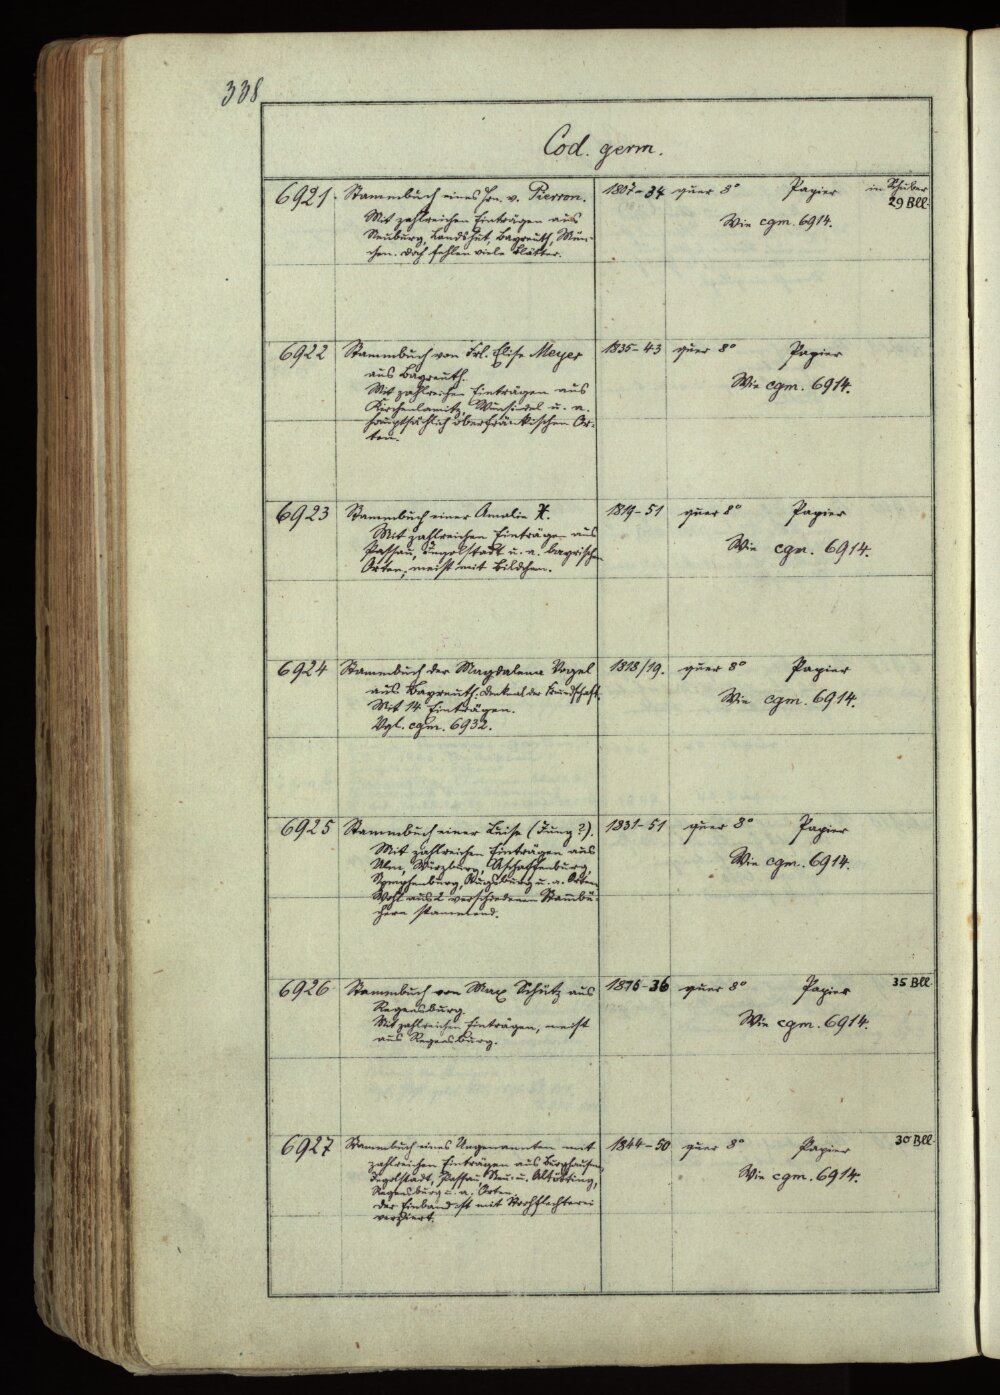 338
Cod. germ.
6921. Stammbuch eines Hrn. v. Pierron. 1807-34 quer 8° Papier in Schuber
29 Bll.
Mit zahlreichen Einträgen aus Wie cgm. 6914.
Neuburg, Landshut, Bayreuth, Mün-
chen. Doch fehlen viele Blätter.
6922 Stammbuch von Frl. Elise Meyer 1835-43 quer 8° Papier
aus Bayreuth.
Mit zahlreichen Einträgen aus Wie cgm. 6914.
Kirchenlamitz, Wunsiedel u. a.
hauptsächlich oberfränkischen Or-
ten.
6923 Stammbuch einer Amalie X. 1819-51 quer 8° Papier
Mit zahlreichen Einträgen aus
Passau, Ingolstadt u. a. bayrischen Wie cgm. 6914.
Orten, meist mit Bildchen.
6924 Stammbuch der Magdalena Vogel 1818/19. quer 8° Papier
aus Bayreuth: Denkmal der Freundschaft.
Mit 14 Einträgen. Wie cgm. 6914.
Vgl. cgm. 6932.
6925 Stammbuch einer Luise (Jung?). 1831-51 quer 8° Papier
Mit zahlreichen Einträgen aus
Ulm, Würzburg, Aschaffenburg, Wie cgm. 6914.
Nymphenburg, Augsburg u. a. Orten
Wohl aus 2 verschiedenen Stammbü-
chern stammend.
6926 Stammbuch von Max Schütz aus quer 8° Papier 35 Bll.
Regensburg.
Mit zahlreichen Einträgen, meist Wie cgm. 6914.
aus Regensburg.
6927 Stammbuch eines Ungenannten mit 1844-50 quer 8° Papier 30 Bll.
zahlreichen Einträgen aus Burghausen,
Ingolstadt, Passau, Neu- u. Altötting, Wie cgm. 6914.
Regensburg u. a. Orten.
Der Einband ist mit Strohflechterei
verziert.